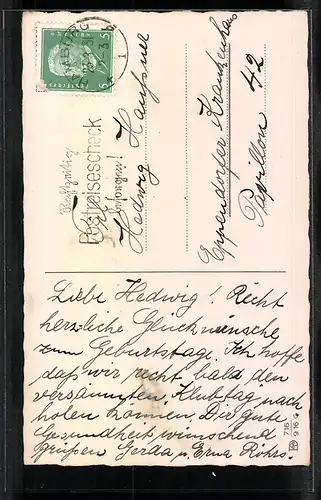 Rechtzeitig
Postreisescheck
besorgen!
Fr.
Hedwig Haußner
Eppendorfer Krankenhaus
Pavillon 42
Liebe Hedwig! Recht
herzliche Glückwünsche
zum Geburtstage. Ich hoffe
daß wir recht bald den
versäumten Klubtag nach
holen können. Die gute
Gesundheit wünschend
grüßen Gerda u. Erna Röhrs.
716
9 16
5 5